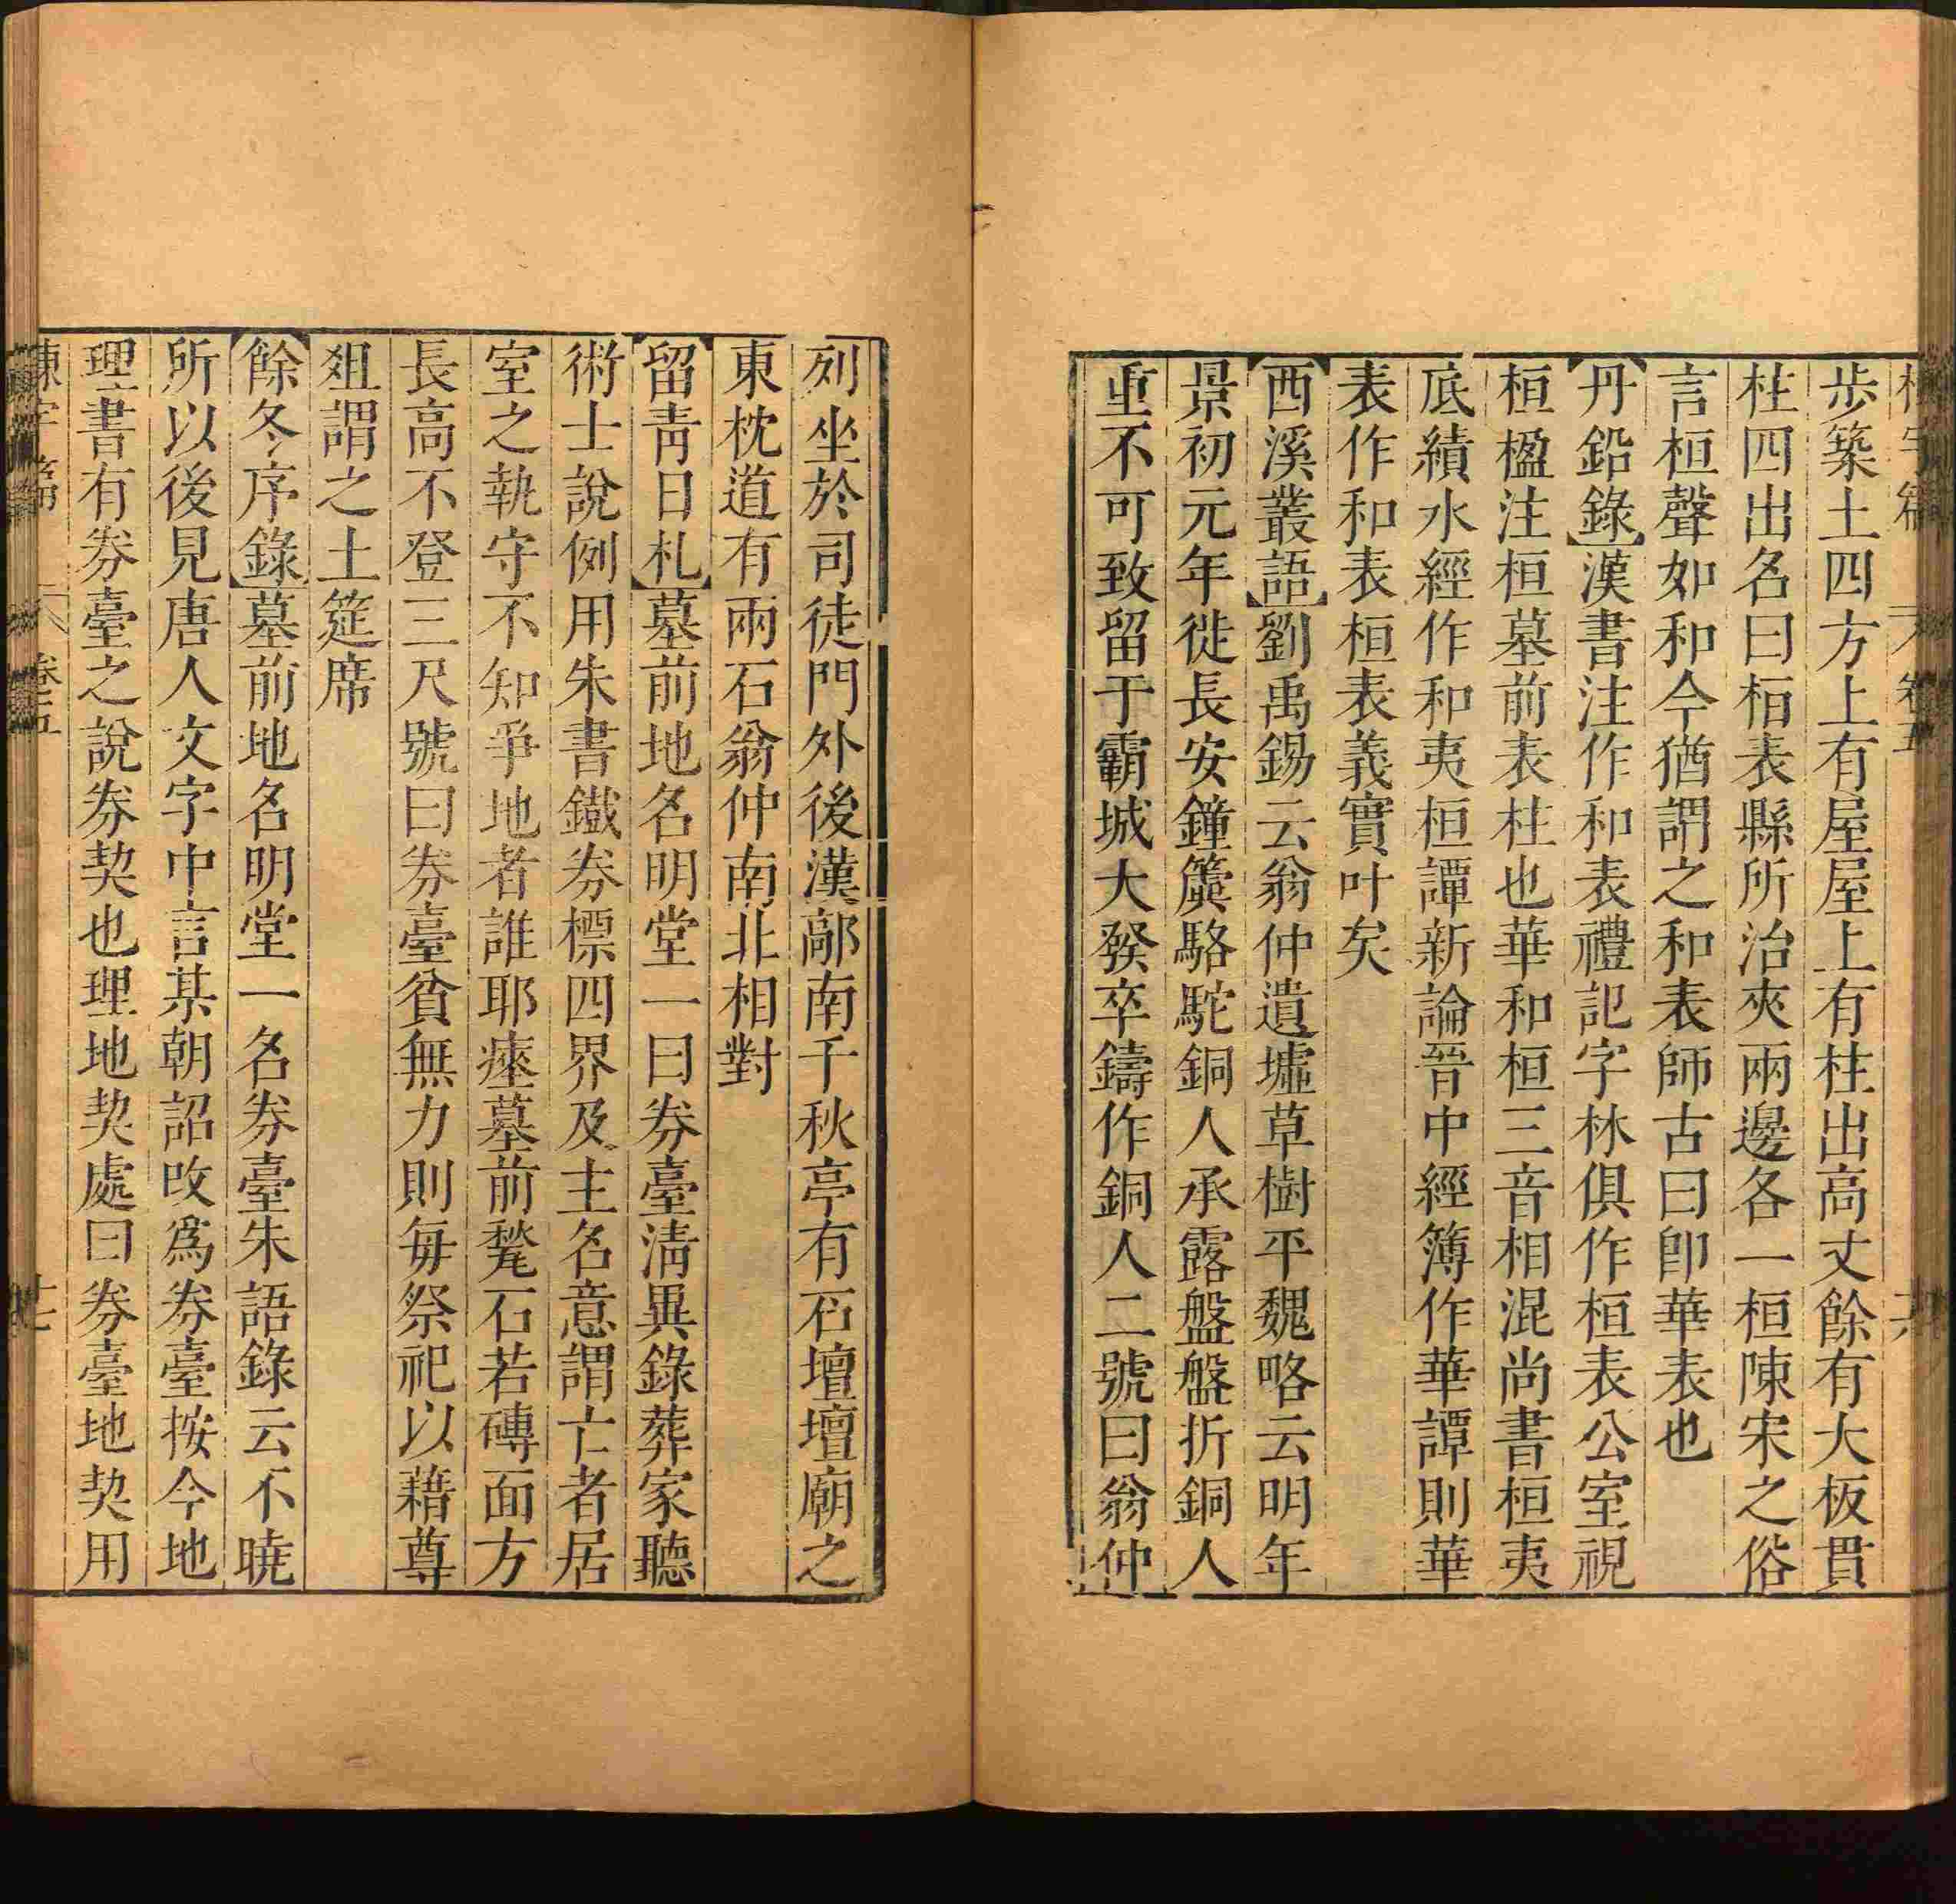 步築土四方上有屋屋上有柱出高丈餘有大板貫
柱四出名曰桓表縣所治夾兩邊各一桓陳宋之俗
言桓聲如和今猶謂之和表師古曰卽華表也
丹鉛錄漢書注作和表禮記字林俱作桓表公室視
桓楹注桓墓前表柱也華和桓三音相混尚書桓夷
底績水經作和夷桓譚新論晉中經簿作華譚則華
表作和表桓表義實叶矣
西溪叢語劉禹錫云翁仲遺墟草樹平魏略云明年
景初元年徙長安鐘簴駱駝銅人承露盤盤折銅人
重不可致留于霸城大發卒鑄作銅人二號曰翁仲
列坐於司徒門外後漢鄗南千秋亭有石壇壇廟之
東枕道有兩石翁仲南北相對
留靑日札墓前地名明堂一曰券臺淸異錄葬家聽
術士說例用朱書鐵券標四界及主名意謂亡者居
室之執守不知爭地者誰耶瘞墓前甃石若磚面方
長高不登三尺號曰券臺貧無力則每祭祀以藉尊
俎謂之土筵席
餘冬序錄墓前地名明堂一名券臺朱語錄云不曉
所以後見唐人文字中言某朝詔改爲券臺按今地
理書有券臺之說券契也理地契處曰券臺地契用
卷五
十七